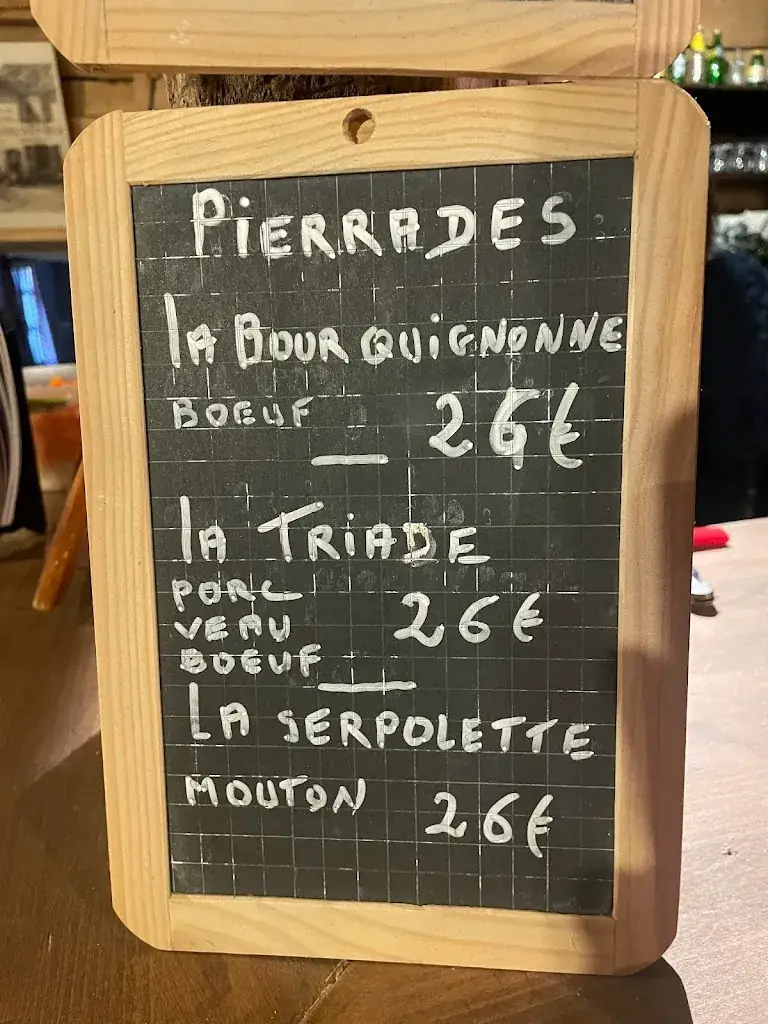 PiERRADES
lA BOURQUiGNONNE
BOEUF 26€
lA TRiADE
PORC
VEAU 26€
BOEUF
LA SERPOLETTE
MOUTON 26€